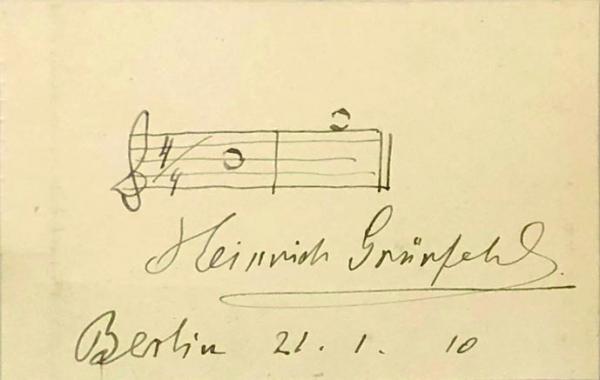 4/4
Heinrich Grünfeld.
Berlin 21. 1. 10